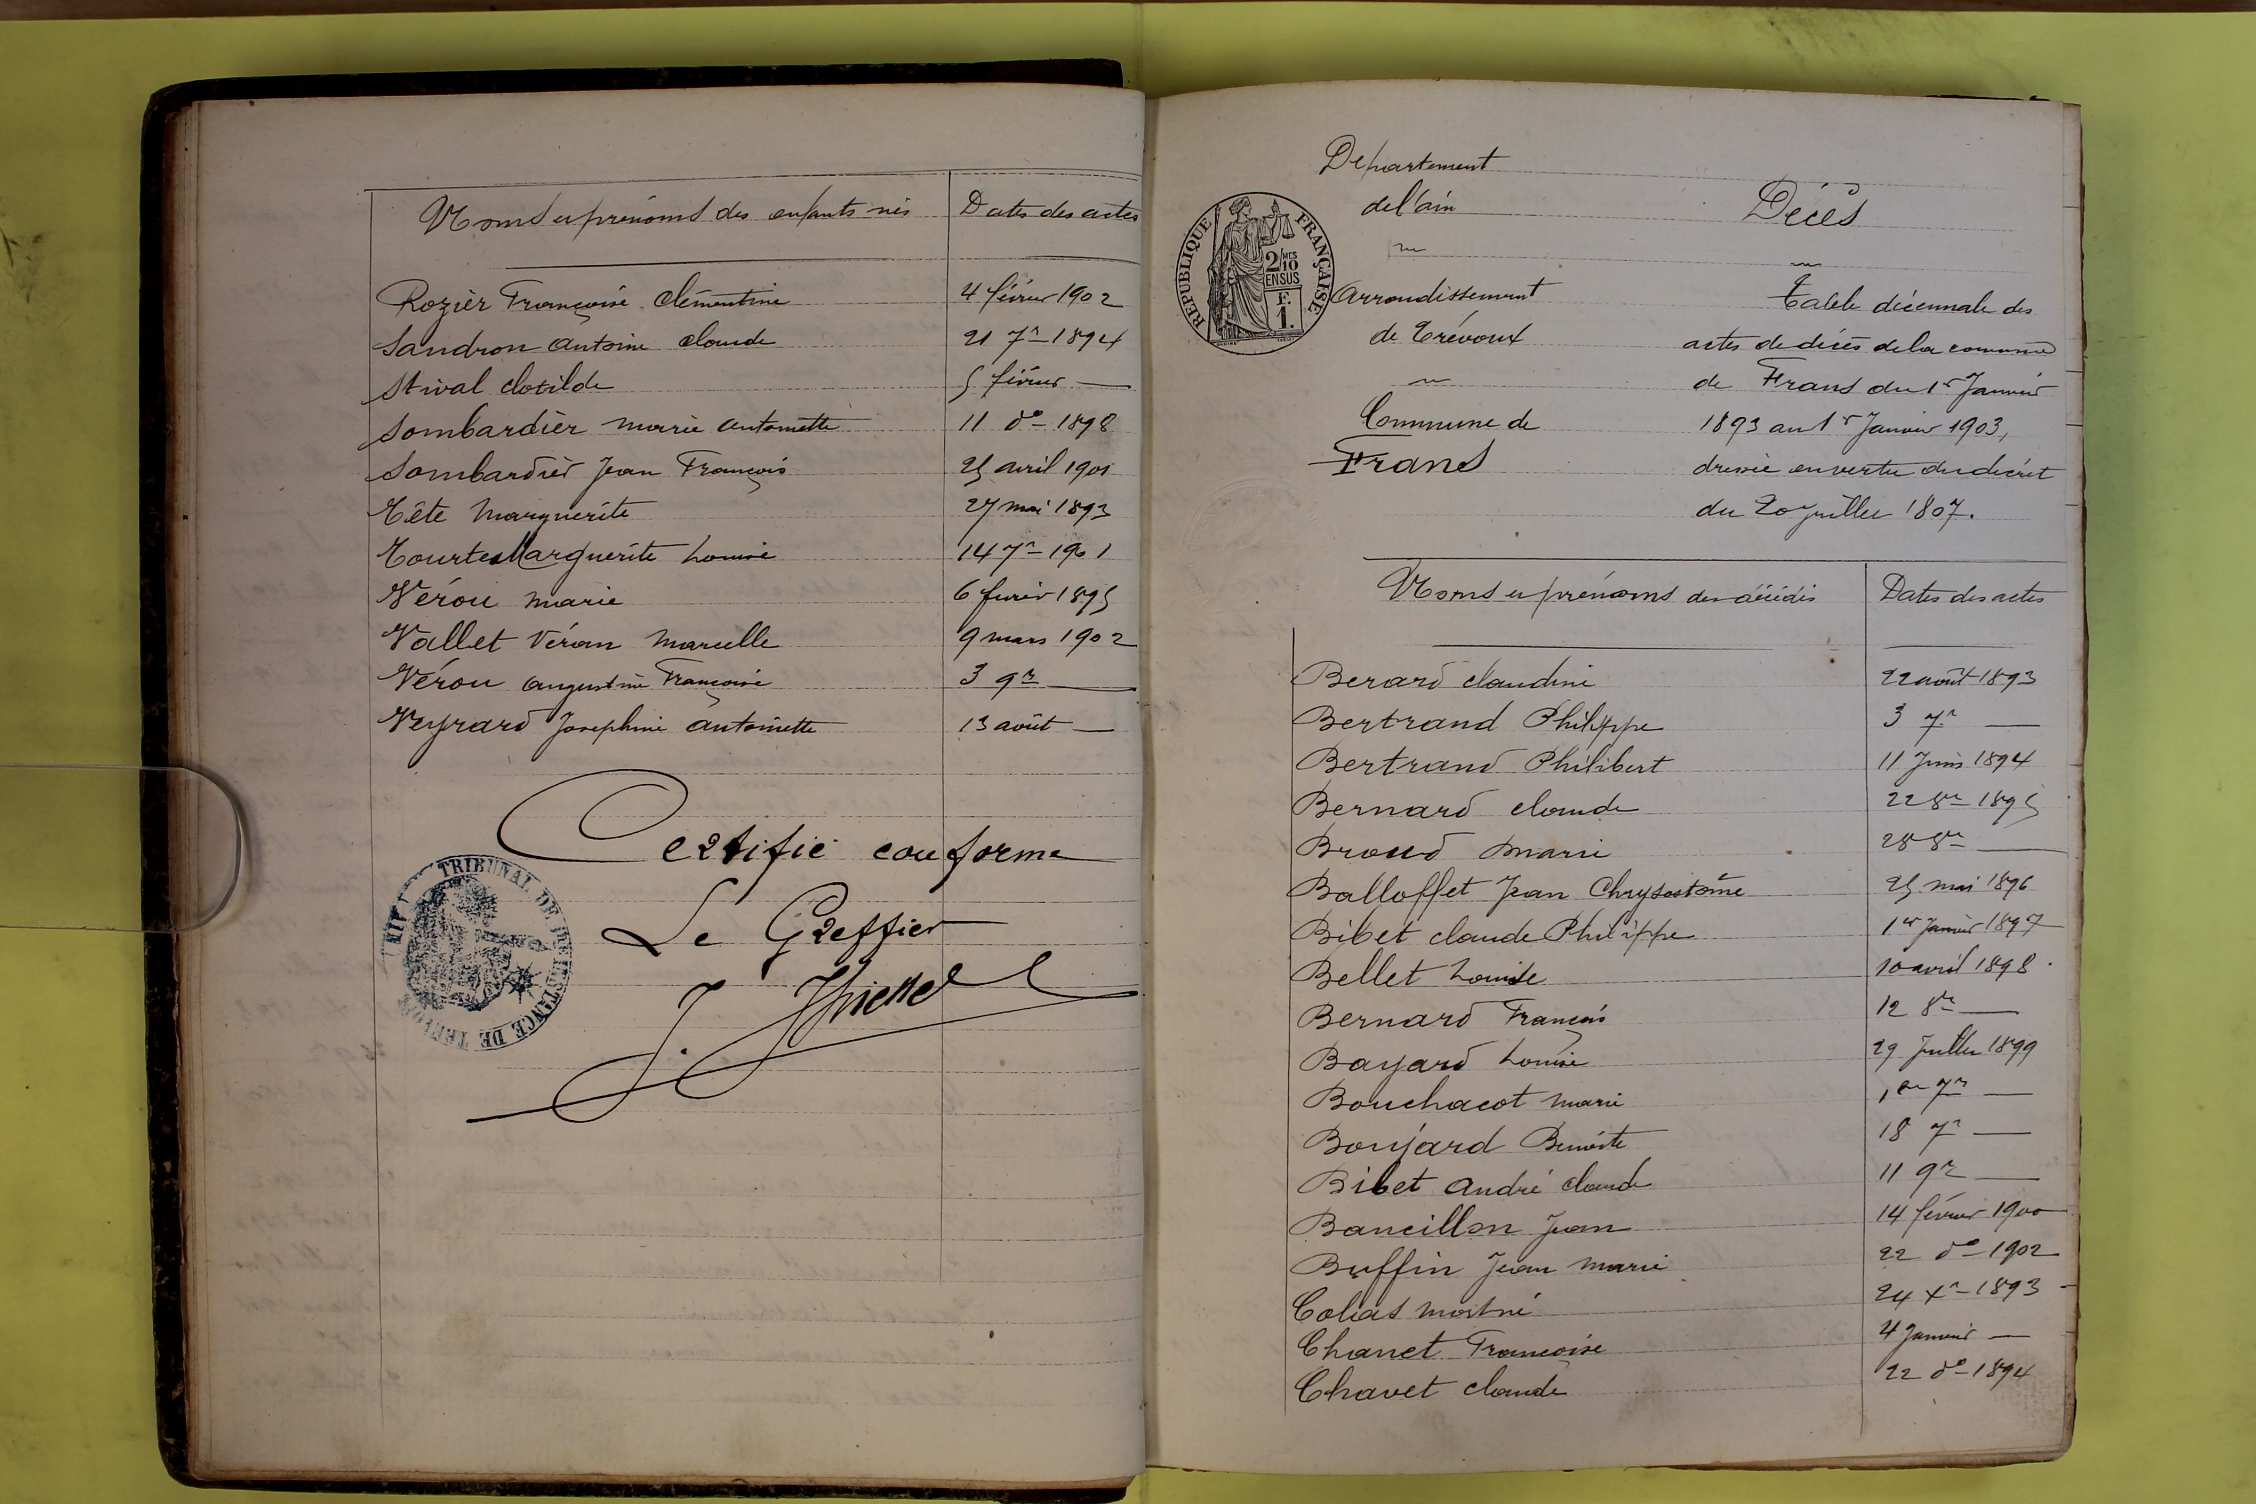 Noms et prénoms des enfants nés Dates des actes
Rozièr Françoise Clémentine 4 février 1902
Sandron Antoine Claude 21 7re 1894
Stival Clotilde 5 février —
Sombardièr Marie Antoinette 11 do 1898
Sombardièr Jean François 25 avril 1901
Tête Marguerite 27 mai 1893
Tourte Marguerite Louise 14 7re 1901
Vérou Marie 6 février 1895
Vallet Véran Marcelle 9 mars 1902
Vérou Augustine Françoise 3 9re —
Veyrard Josephine Antoinette 13 août —
Certifié conforme
Le Greffier
J.
TRIBUNAL DE 1ERE INSTANCE DE TREVOUX
Departement
de l'ain
Arrondissement
de Trévoux
Commune de
Frans
RÉPUBLIQUE FRANÇAISE
2/10 MES
EN SUS
F.
1.
Décès
Table décennale des
actes de décès de la commune
de Frans du 1r Janvier
1893 au 1r Janvier 1903,
dressée en vertu du décret
du 20 juillet 1807.
Noms et prénoms des décédés Dates des actes
Berard Claudine 22 août 1893
Bertrand Philippe 3 7re —
Bertrand Philibert 11 Juin 1894
Bernard Claude 22 8re 1895
Broud Marie 28 8re —
Balloffet Jean Chrysostôme 25 mai 1896
Bibet Claude Philippe 1er Janvier 1897
Bellet Louise 10 avril 1898
Bernard François 12 8re —
Bayard Louise 29 Juillet 1899
Bouchacot Marie 1er 7re —
Boujard Benoîte 18 7re —
Bibet André Claude 11 9re —
Bancillon Jean 14 février 1900
Buffin Jean Marie 22 do 1902
Colias mort né 24 Xre 1893
Chanet Françoise 4 Janvier —
Chavet Claude 22 do 1894